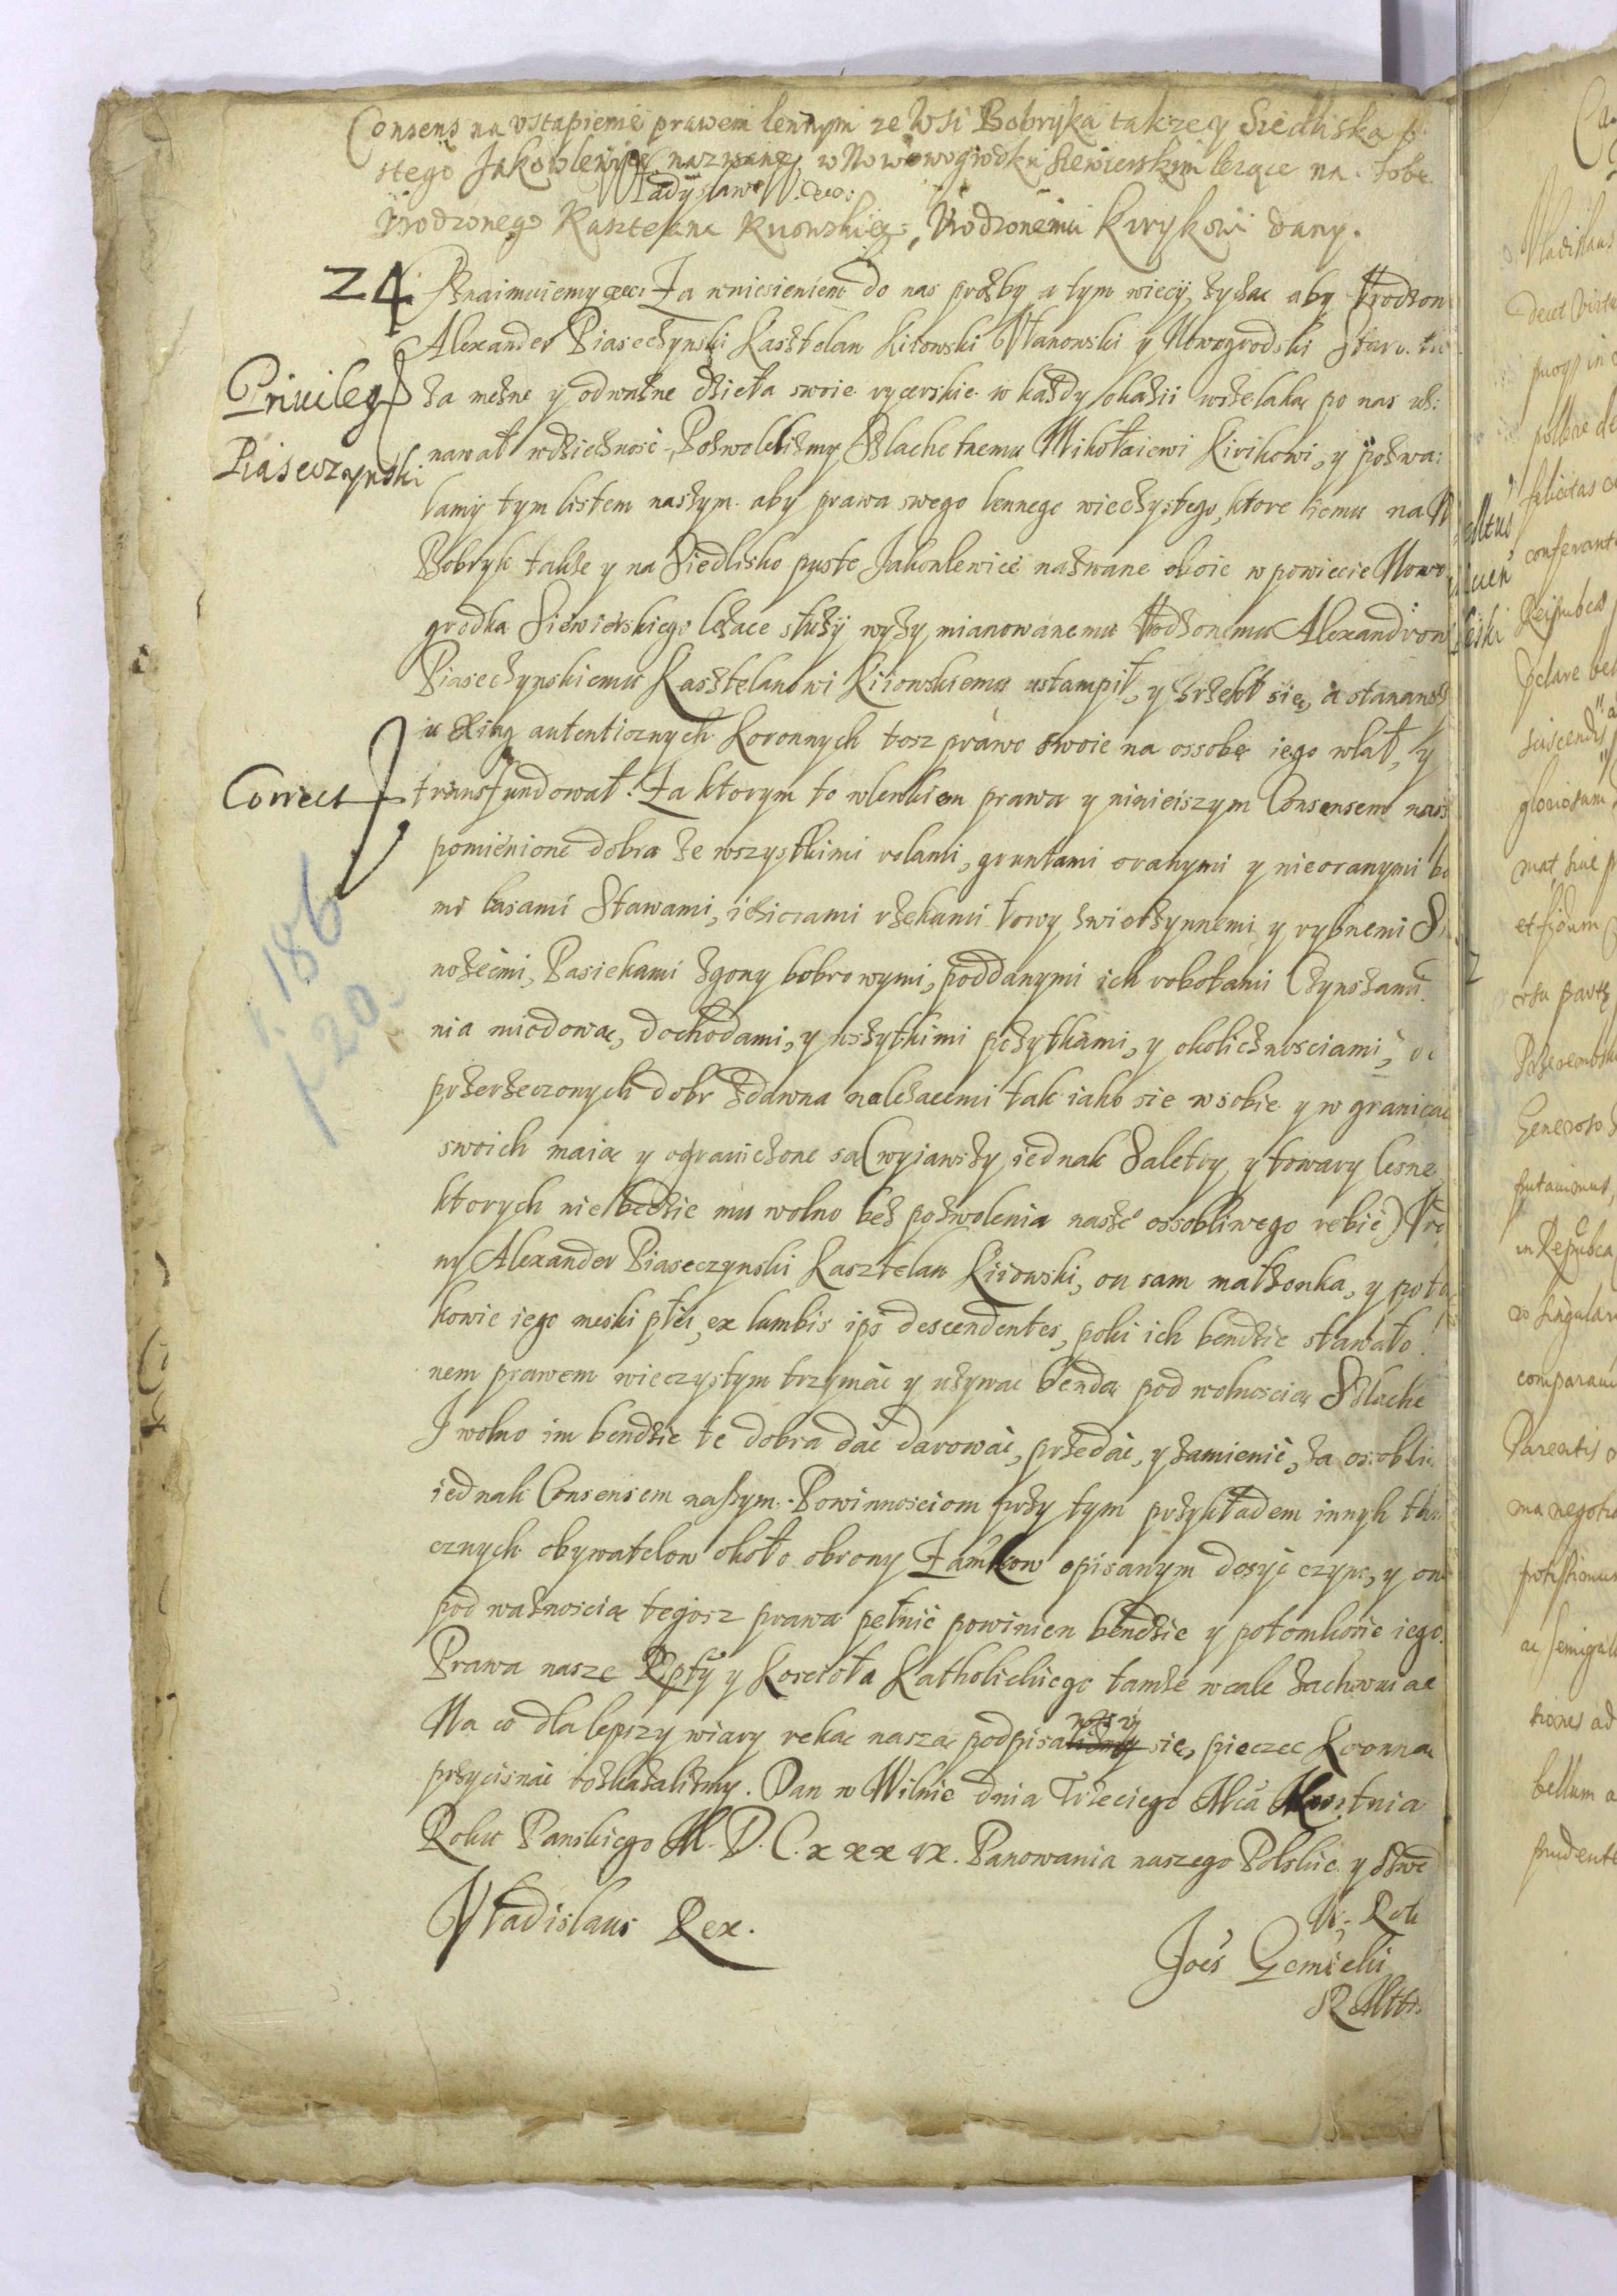 Consens na vstąpienie prawem lennym ze Wsi Bobryka takze y Siedliska p:
stego Jakowlewice nazwane, w Nowowogrodku Siewierskim lezące na. Sobe
Wladyslaw
Urodzonego Kasztelana Kiiowskieg:, Urodzonemu Kirykowi dany.
24 Oznaimuiemy etc. Za wniesieniem do nas prożby a tym wiecy, życząc aby Vrodzon
Alexander Piaseczynski Kasztelan Kiiowski Vlanowski y Nowogrodski Staro.
Priuileg za mężne y odważne dzieła swoie rycerskie w każdy okazii wszelaką po nas uz:
Piaseczynski nawał wdzieczność, Pozwoliliżmy Szlachetnemu Mikołaiewi Kirikowi, y pozwa:
lamy tym listem naszym. aby prawa swego lennego wieczystego, ktore iemu na W
Bobryk takze y na Siedlisko puste Jakowlewice nazwane oboie w powiecie Nowo
grodka Siewierskiego leżace służy wyży mianowanemu Vrodzonemu Alexandrow
Piaseczynskiemu Kasztelanowi Kiiowskiemu ustampił, y zrzekł się, a stanąwsz
u Xiag autenticznych Koronnych tosz prawo swoie na ossobę iego wlał, y
Correct transfundował. Za ktorym to wlewkiem prawa y ninieiszym Consensem nasz
pomienione dobra ze wszystkimi rolami, gruntami oranymi y nieoranymi bo
mi lasami Stawami, ieziorami rzekami łowy zwierzynnemi y rybnemi Si
nożećmi, Pasiekami zgony bobrowymi, poddanymi ich robotami Czynszami
nia miodową, dochodami, y wszytkimi pożytkami, y okolicznosciami, do
przerzeczonych dobr zdawna należącemi tak iako sie w sobie y w granicac
swoich maią y ograniczone są (wyiąwszy iednak Saletry y towary lesne
ktorych nie będzie mu wolno bez pozwolenia nasze ossobliwego robić) Vro
ny Alexander Piaseczynski Kasztelan Kiiowski, on sam małżonka, y poto
kowie iego męski płci, ex lumbis ips descendentes, poki ich bendzie stawało
nem prawem wieczystym trzymać y używać benda pod wolnoscią Szlache
I wolno im bendzie te dobra dać darować, przedać, y zamienić, za osobli
iednak Consensem naszym. Powinnosciom przy tym przykładem innych tam
ecznych obywatelow około obrony Zamkow opisanym dosyć czynić, y one
pod ważnoscią tegosz prawa pełnić powinien bendzie y potomkowie iego.
Prawa nasze Rptỹ y Koscioła Katholickiego tamże wcale zachowuiąc
Na co dla lepszy wiary ręką naszą podpisalismy się, pieczęć Koronną
przycisnąć rozkazaliżmy. Dan w Wilnie dnia Trzeciego Mca Kwietnia
Roku Panskiego M. D. C. xxxvx. Panowania naszego Polskie. y Szwe
Vladislaus Rex.
Joes Gembicki
R Mtti.
186
20